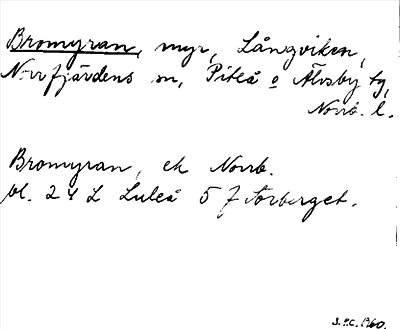 Bromyran, myr, Långviken,
Norrfjärdens sn, Piteå o Älvsby tg,
Norrb. l.
Bromyran, ek Norrb.
bl. 24 L Luleå 5 f Storberget.
S.P.C. 1960.